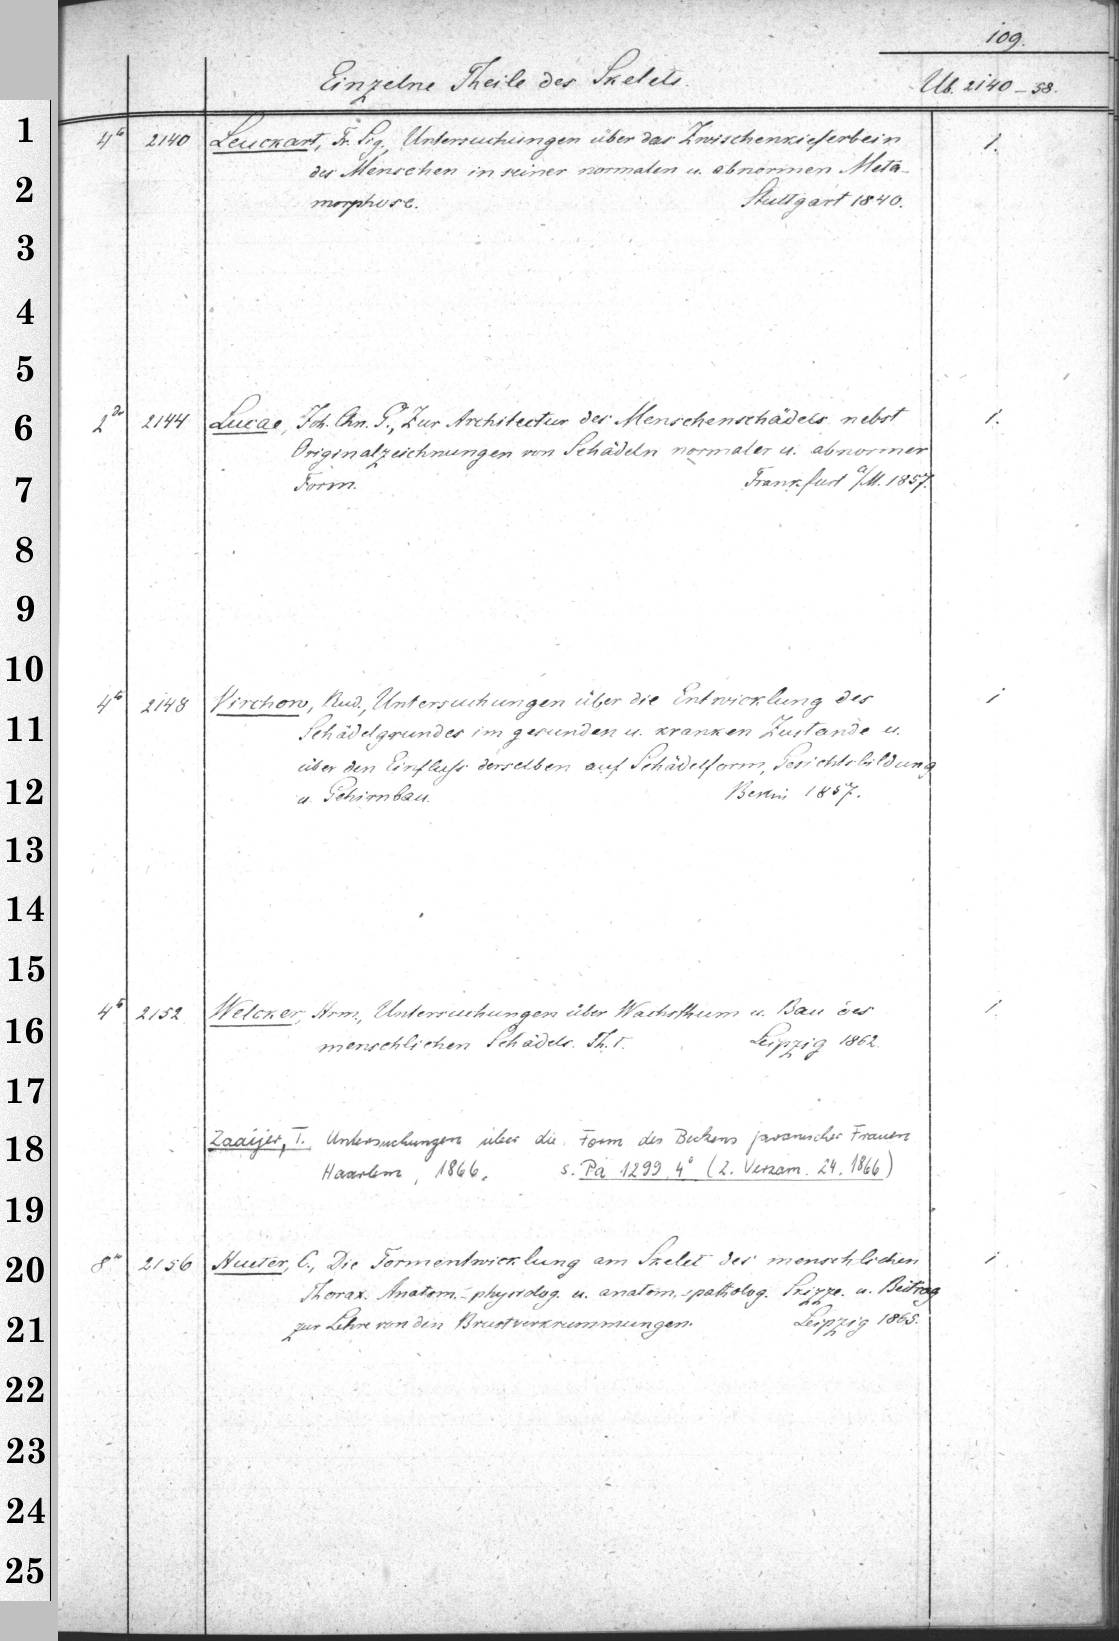 109.
Einzelne Theile des Skelets.
Ub. 2140–58.
4to 2140 Leuckart, Fr. Sig., Untersuchungen über das Zwischenkieferbein 1.
des Menschen in seiner normalen u. abnormen Meta-
morphose. Stuttgart 1840.
2do 2144 Lucae, Joh. Chn. G., Zur Architectur des Menschenschädels nebst 1.
Originalzeichnungen von Schädeln normaler u. abnormer
Form. Frankfurt a/M. 1857.
4to 2148 Virchow, Rud., Untersuchungen über die Entwicklung des 1
Schädelgrundes im gesunden u. kranken Zustande u.
über den Einfluss derselben auf Schädelform, Gesichtsbildung
u. Gehirnbau. Berlin 1857.
4to 2152 Welcker, Hrm., Untersuchungen über Wachsthum u. Bau des 1.
menschlichen Schädels. Th. I. Leipzig 1862.
Zaaijer, T. Untersuchungen über die Form des Beckens javanischer Frauen
Haarlem, 1866. s. Pa 1299 4° (2. Verzam. 24. 1866)
8vo 2156 Hueter, C., Die Formentwicklung am Skelet des menschlichen 1
Thorax. Anatom.-physiolog. u. anatom.-patholog. Skizze. u. Beitrag
zur Lehre von den Brustverkrummungen. Leipzig 1865.
1
2
3
4
5
6
7
8
9
10
11
12
13
14
15
16
17
18
19
20
21
22
23
24
25